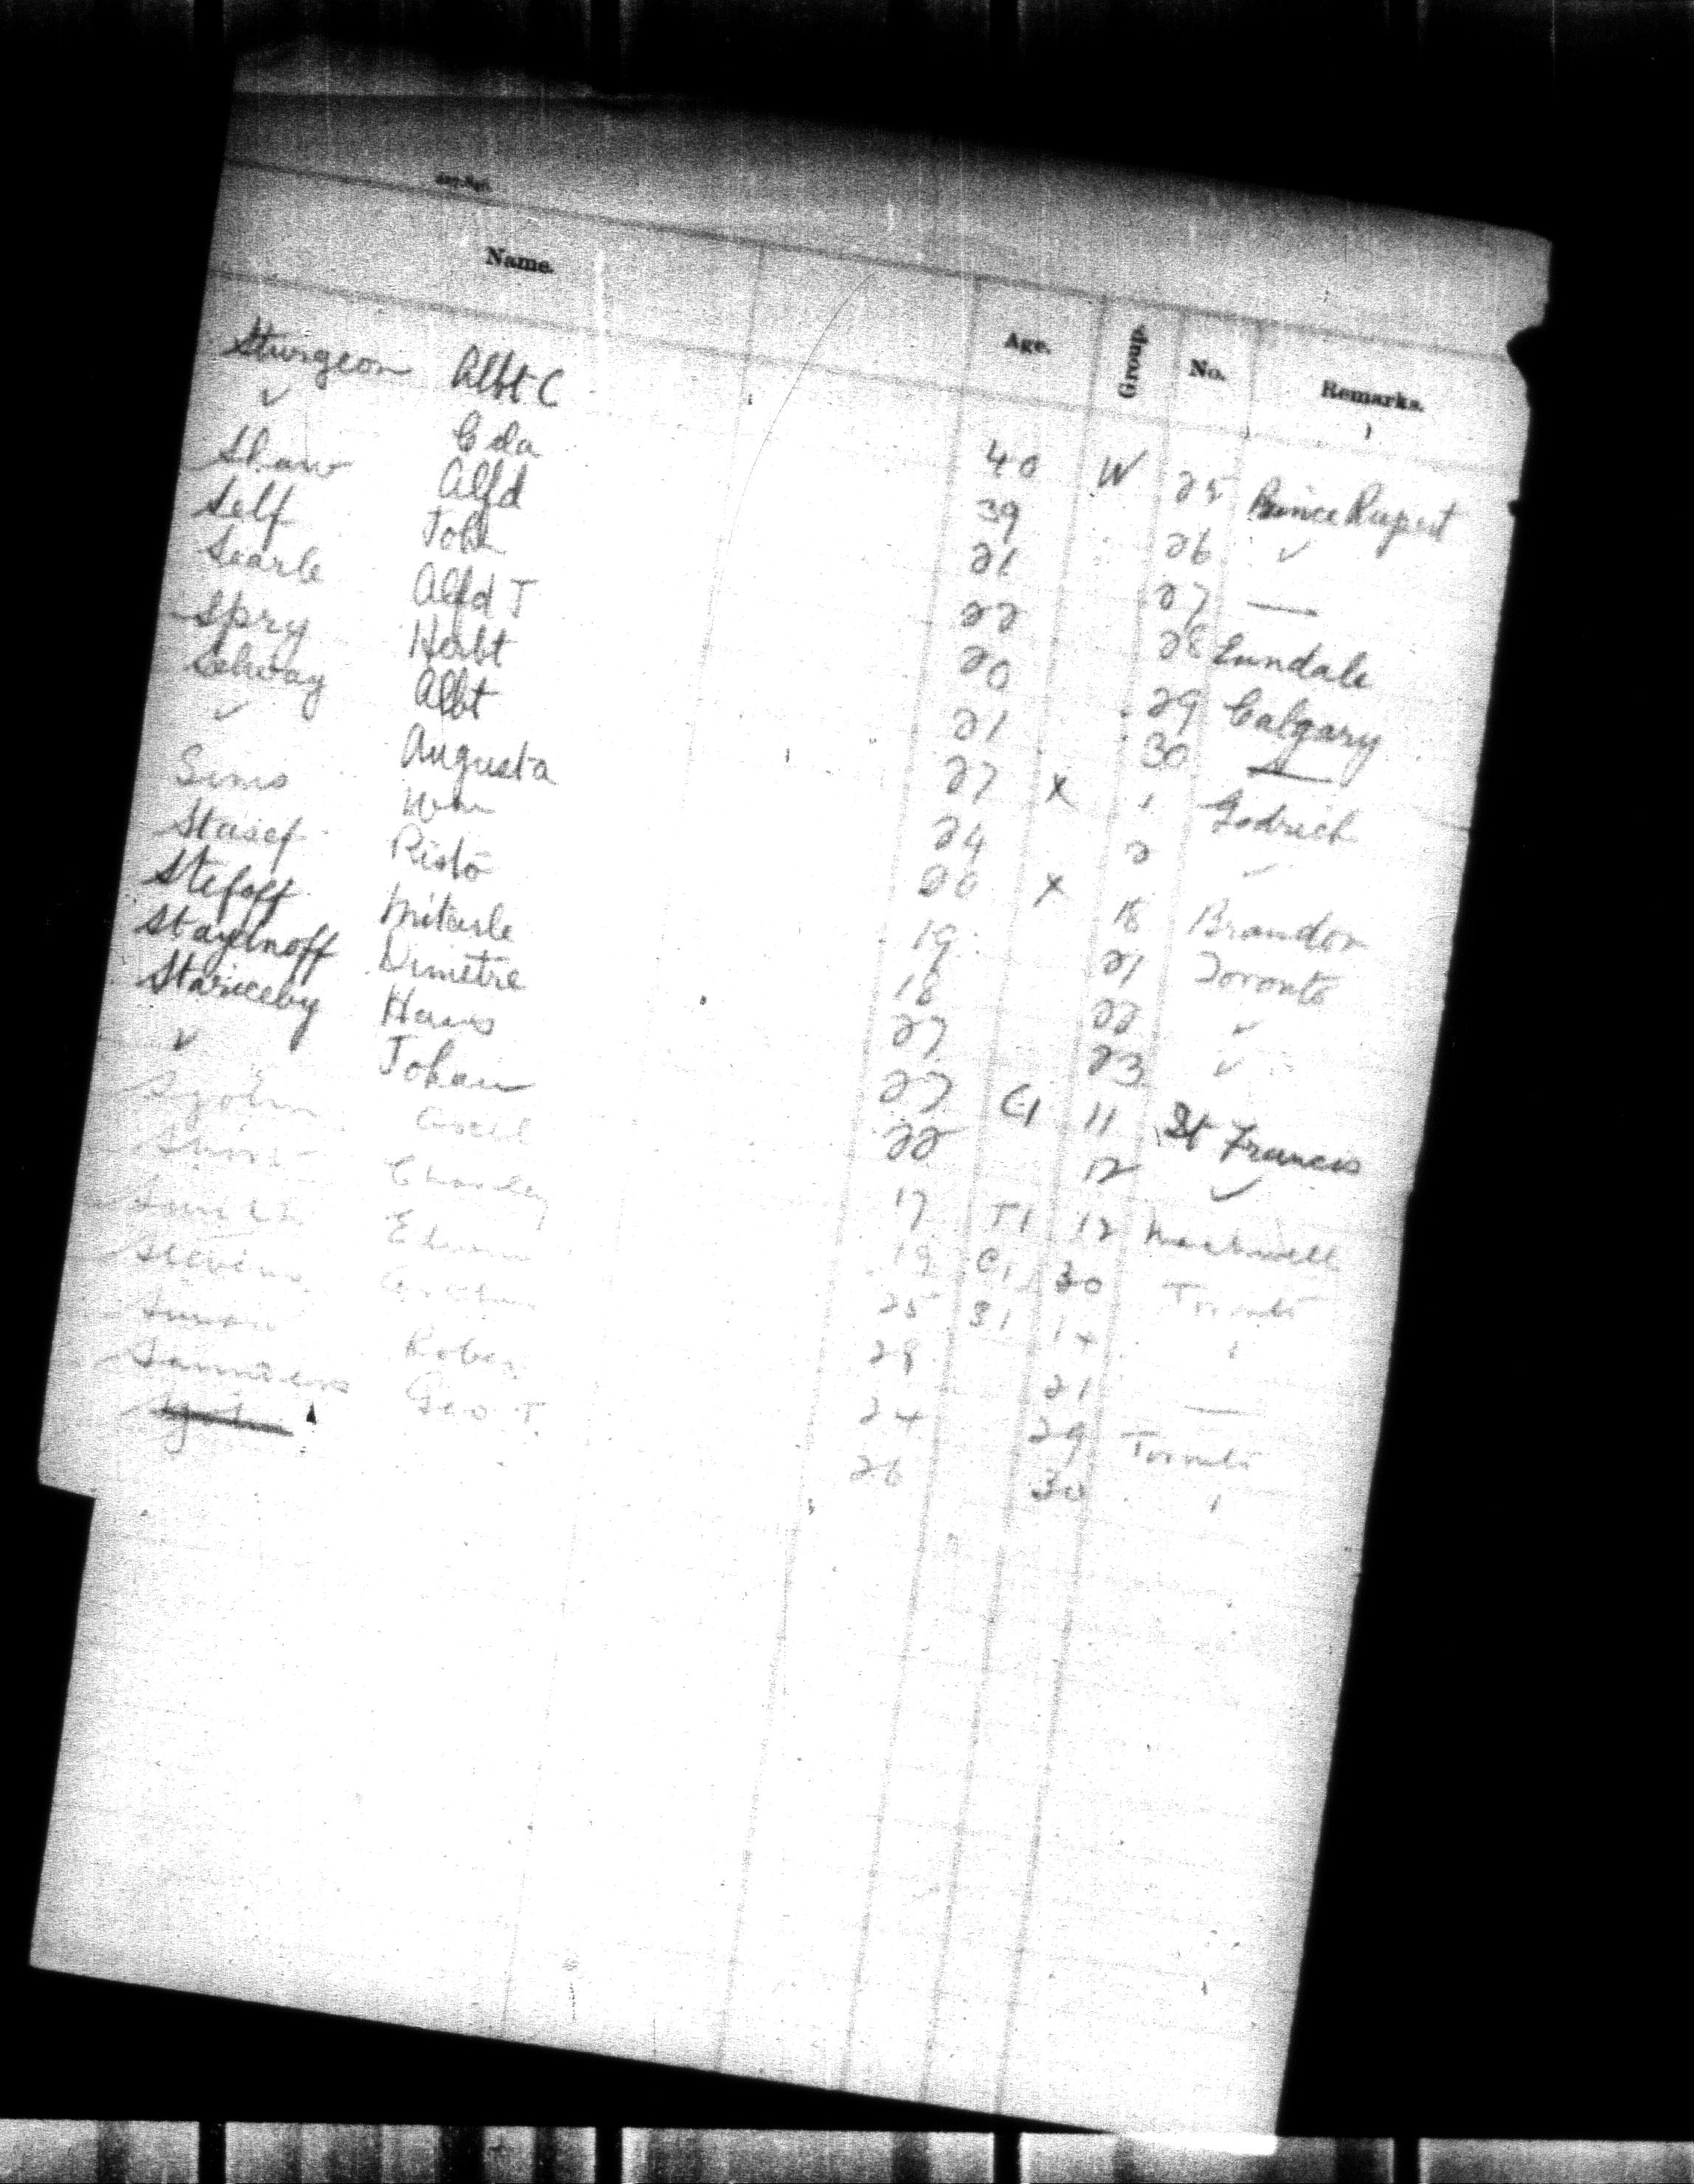 Name. Age. Group. No. Remarks.
Sturgeon Albt C 40 W 25 Prince Rupert
✓ Eda 39 26 ✓
Shaw Alfd 21 27 —
Self John 22 28 Lundale
Searle Alfd T 20 29 Calgary
Spry Herbt 21 30 —
Selway Albt 27 X 1 Godrich
✓ Augusta 24 2 ✓
Sims Wm 20 X 18 Brandon
Stasef Risto 19 21 Toronto
Stefoff 18 22 ✓
Dimetre 27 23 ✓
Hans 27 C1 11 St Francis
✓ Johan 22 12 ✓
17 T1 12
Charley 19 C1 30 Toronto
Smith 25 S1 14
Stevens Arthur 28 21 —
24 29 Toronto
Saunders Geo T. 26 30